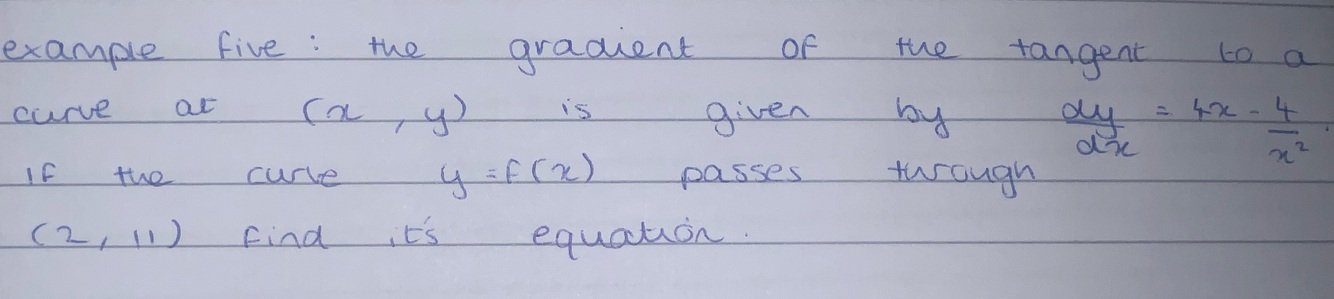 example five: the gradient of the tangent to a
curve at (x, y) is given by dy/dx = 4x - 4/x².
If the curve y = f(x) passes through
(2, 11) find it's equation.